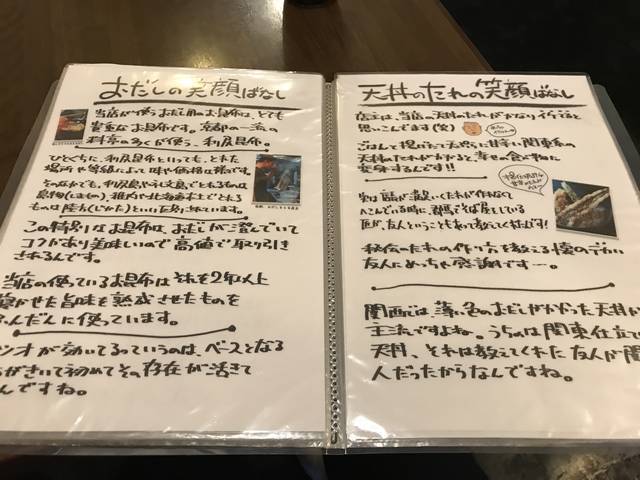 おだしの笑顔ばなし
当店が使うおだし用のお昆布は、とても
貴重なお昆布です。京都の一流の
料亭の多くが使う、利尻昆布。
ひとくちに、利尻昆布といっても、とれた
場所や等級によって味や価格は様々です。
そのなかでも、利尻島や礼文島でとれるものは
島物(しまもの)、稚内や北海道本土でとれる
ものは陸方(じかた)といい
この特別なお昆布は、おだしが澄んでいて
コクがあり美味しいので高値で取り引き
されるんです。
当店の使っているお昆布はそれを2年以上
寝かせた旨味を熟成させたものを
ふんだんに使っています。
ツオが効いてるっていうのは、ベースとなる
がきいて初めてその存在が活きて
んですね。
天丼のたれの笑顔ばなし
店主は、当店の天丼のたれがかなりイケてると
思いこんでます(笑)
ごはんて揚げたて天ぷらに甘辛い関東系の
天丼のたれがかかると幸せの食べ物に
変身するんです!!
実は話が
へこんでいる時に、
匠が、友人ということもあって教えてくれたんです!
秘伝のたれの作り方を教える懐のデカい
友人にめっちゃ感謝です〜。
関西では薄い色のおだしがかかった天丼が
主流ですよね。うちのは関東仕立て
天丼、それは教えてくれた友人が関
人だったからなんですね。